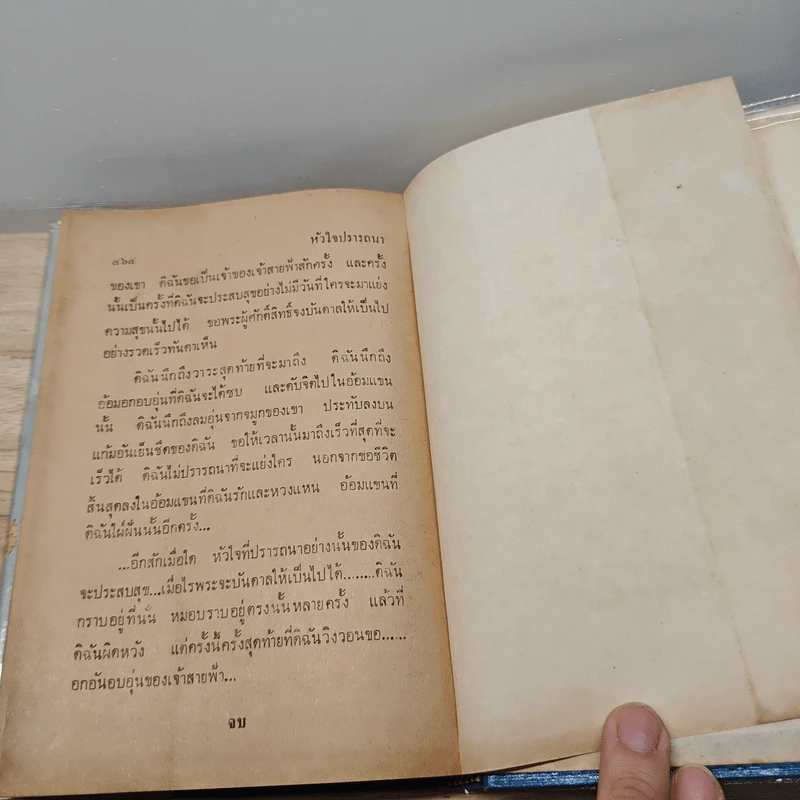 หัวใจปรารถนา
๔๖๘
ของเขา ดิฉันขอเป็นเจ้าของเจ้าสายฟ้าสักครั้ง และครั้ง
นั้นเป็นครั้งที่ดิฉันจะประสบสุขอย่างไม่มีวันที่ใครจะมาแย่ง
ความสุขนั้นไปได้ ขอพระผู้ศักดิ์สิทธิ์จงบันดาลให้เป็นไป
อย่างรวดเร็วทันตาเห็น
ดิฉันนึกถึงวาระสุดท้ายที่จะมาถึง ดิฉันนึกถึง
อ้อมอกอบอุ่นที่ดิฉันจะได้ซบ และดับจิตไปในอ้อมแขน
นั้น ดิฉันนึกถึงลมอุ่นจากจมูกของเขา ประทับลงบน
แก้มอันเย็นชืดของดิฉัน ขอให้เวลานั้นมาถึงเร็วที่สุดที่จะ
เร็วได้ ดิฉันไม่ปรารถนาที่จะแย่งใคร นอกจากขอชีวิต
สิ้นสุดลงในอ้อมแขนที่ดิฉันรักและหวงแหน อ้อมแขนที่
ดิฉันใฝ่ฝันนั้นอีกครั้ง...
...อีกสักเมื่อใด หัวใจที่ปรารถนาอย่างนั้นของดิฉัน
จะประสบสุข...เมื่อไรพระจะบันดาลให้เป็นไปได้........ดิฉัน
กราบอยู่ที่นั่น หมอบราบอยู่ตรงนั้นหลายครั้ง แล้วที่
ดิฉันผิดหวัง แต่ครั้งนี้ครั้งสุดท้ายที่ดิฉันวิงวอนขอ......
อกอันอบอุ่นของเจ้าสายฟ้า...
จบ